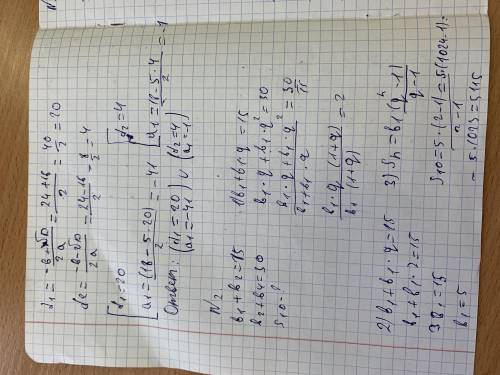 d1 = (-b+√D)/2a = (24+16)/2 = 40/2 = 20
d2 = (-b-√D)/2a = (24-16)/2 = 8/2 = 4
[d1=20
a1 = (18-5·20)/2 = -41
[d2=4
a1 = (18-5·4)/2 = -1
Ответ: (d1=20 a1=-41) ∪ (d2=4 a1=-1)
N2
b1+b2=15
b2+b3=30
S10-?
1) b1+b1·q=15
b1·q+b1·q²=30
(b1·q+b1·q²)/(b1+b1·q) = 30/15
(b1·q(1+q))/(b1(1+q)) = 2
2) b1+b1·q=15
b1+b1·2=15
3b1=15
b1=5
3) Sn = b1(qⁿ-1)/(q-1)
S10 = 5·(2-1)/(2-1) = 5·(1024-1) =
= 5·1023 = 5115